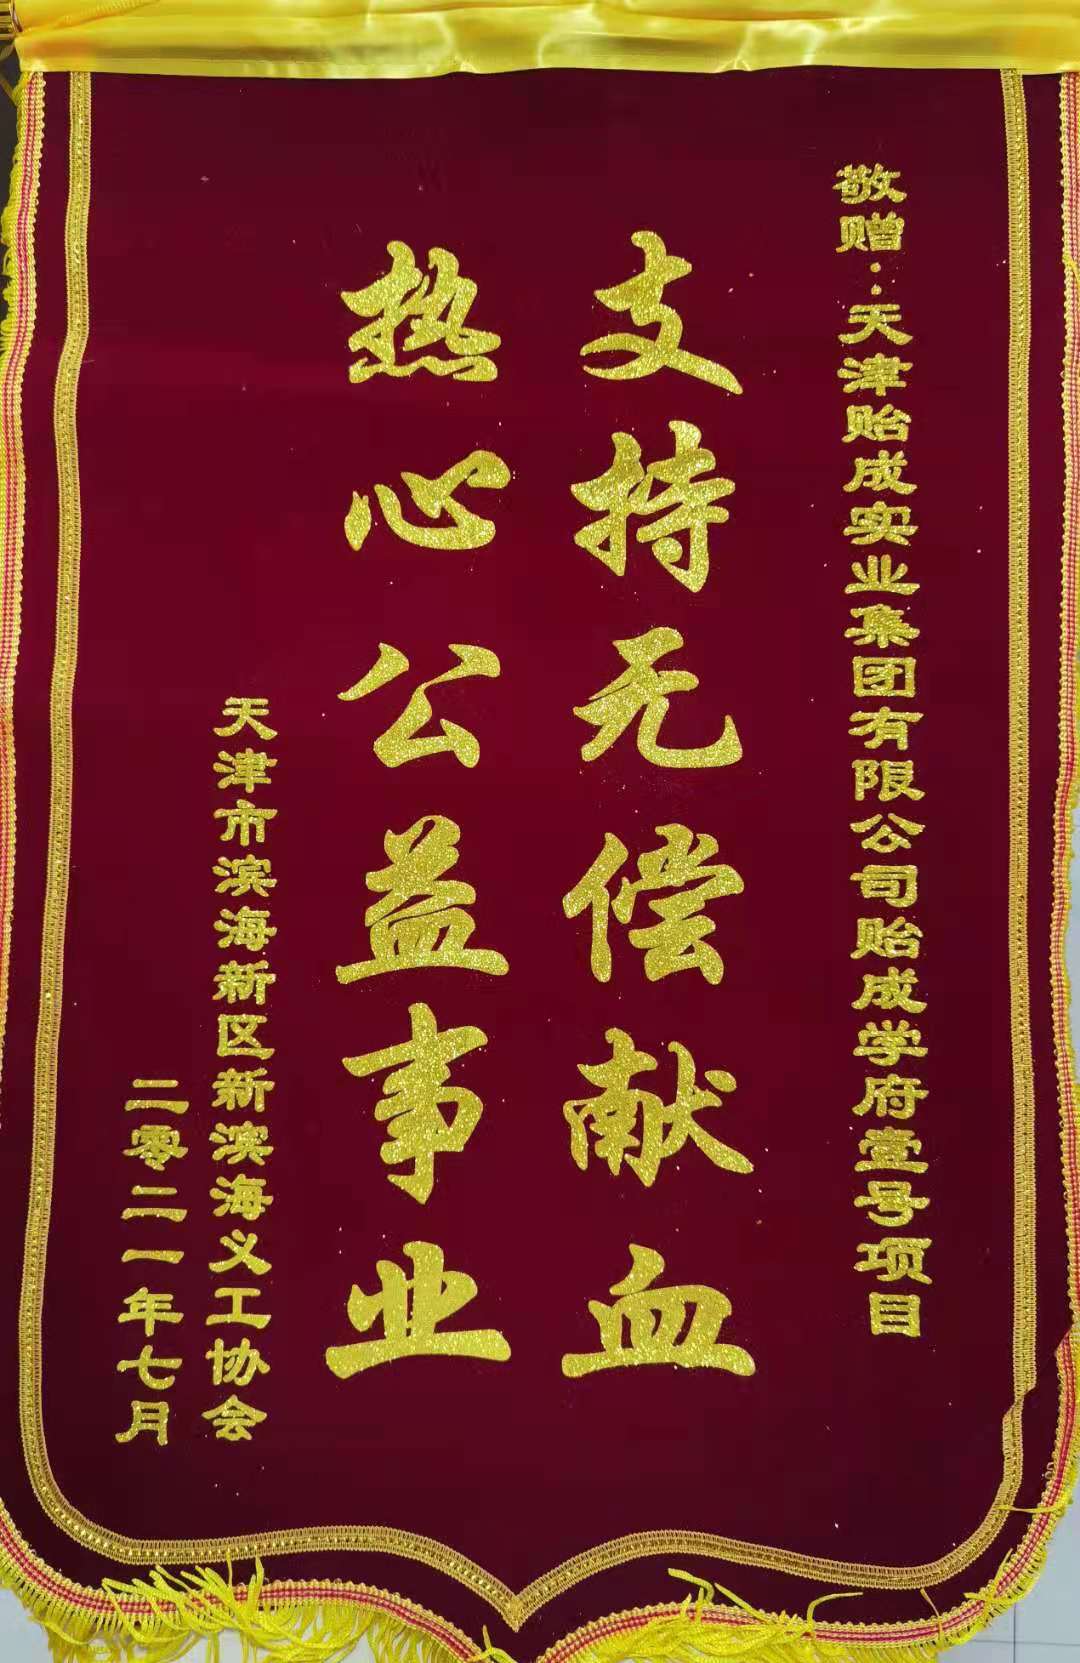 敬赠：天津贻成实业集团有限公司贻成学府壹号项目
支持无偿献血
热心公益事业
天津市滨海新区新滨海义工协会
二零二一年七月